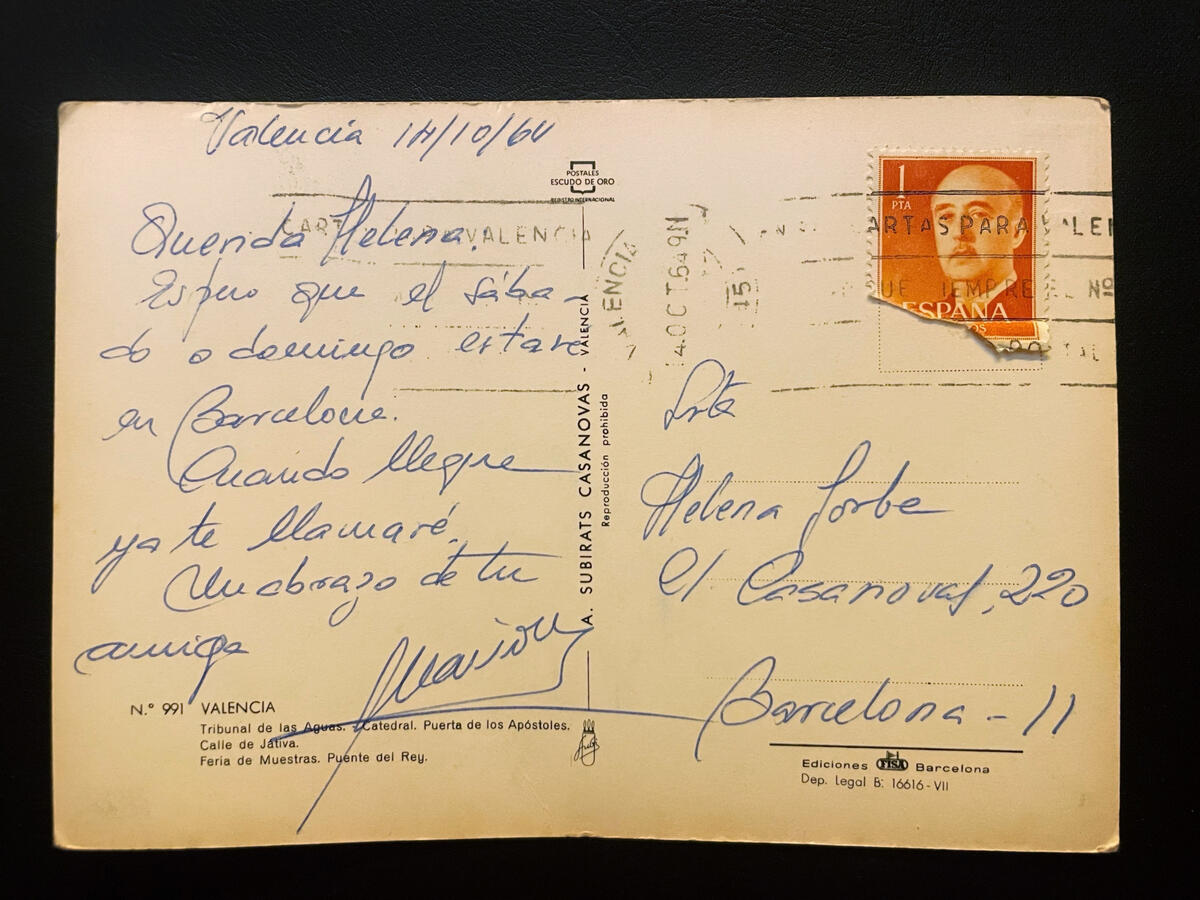 Valencia 14/10/64
POSTALES
ESCUDO DE ORO
REGISTRO INTERNACIONAL
Querida Helena.
Espero que el sába-
do o domingo estare
en Barcelona.
Cuando llegue
ya te llamaré.
Un abrazo de tu
amiga
N.º 991 VALENCIA
Tribunal de las Aguas. - Catedral. Puerta de los Apóstoles.
Calle de Játiva.
Feria de Muestras. Puente del Rey.
A. SUBIRATS CASANOVAS - VALENCIA
Reproducción prohibida
VALENCIA
OCT.64
1
PTA
ESPAÑA
CARTAS PARA VALEN
Nº
Srta
Helena
c/. Casanovas, 220
Barcelona - 11
Ediciones FISA Barcelona
Dep. Legal B: 16616-VII